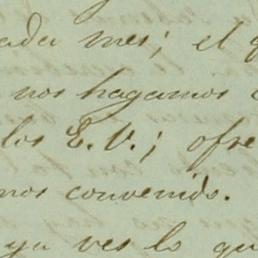 cada mes; el q
nos hagamos
los E. V.; ofre
mos convenido.
ya ves lo qu